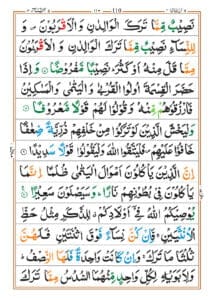 110
نَصِيْبٌ مِّمَّا تَرَكَ الْوَالِدٰنِ وَ الْاَقْرَبُوْنَ وَ
لِلنِّسَآءِ نَصِيْبٌ مِّمَّا تَرَكَ الْوَالِدٰنِ وَ الْاَقْرَبُوْنَ
مِمَّا قَلَّ مِنْهُ اَوْ كَثُرَ نَصِيْبًا مَّفْرُوْضًا وَ اِذَا
حَضَرَ الْقِسْمَةَ اُولُوا الْقُرْبٰى وَ الْيَتٰمٰى وَ الْمَسٰكِيْنُ
فَارْزُقُوْهُمْ مِّنْهُ وَ قُوْلُوْا لَهُمْ قَوْلًا مَّعْرُوْفًا
وَ لْيَخْشَ الَّذِيْنَ لَوْ تَرَكُوْا مِنْ خَلْفِهِمْ ذُرِّيَّةً ضِعٰفًا
خَافُوْا عَلَيْهِمْ فَلْيَتَّقُوا اللّٰهَ وَ لْيَقُوْلُوْا قَوْلًا سَدِيْدًا
اِنَّ الَّذِيْنَ يَاْكُلُوْنَ اَمْوَالَ الْيَتٰمٰى ظُلْمًا اِنَّمَا
يَاْكُلُوْنَ فِيْ بُطُوْنِهِمْ نَارًا وَ سَيَصْلَوْنَ سَعِيْرًا
يُوْصِيْكُمُ اللّٰهُ فِيْ اَوْلَادِكُمْ لِلذَّكَرِ مِثْلُ حَظِّ
الْاُنْثَيَيْنِ فَاِنْ كُنَّ نِسَآءً فَوْقَ اثْنَتَيْنِ فَلَهُنَّ
ثُلُثَا مَا تَرَكَ وَ اِنْ كَانَتْ وَاحِدَةً فَلَهَا النِّصْفُ
وَ لِاَبَوَيْهِ لِكُلِّ وَاحِدٍ مِّنْهُمَا السُّدُسُ مِمَّا تَرَكَ